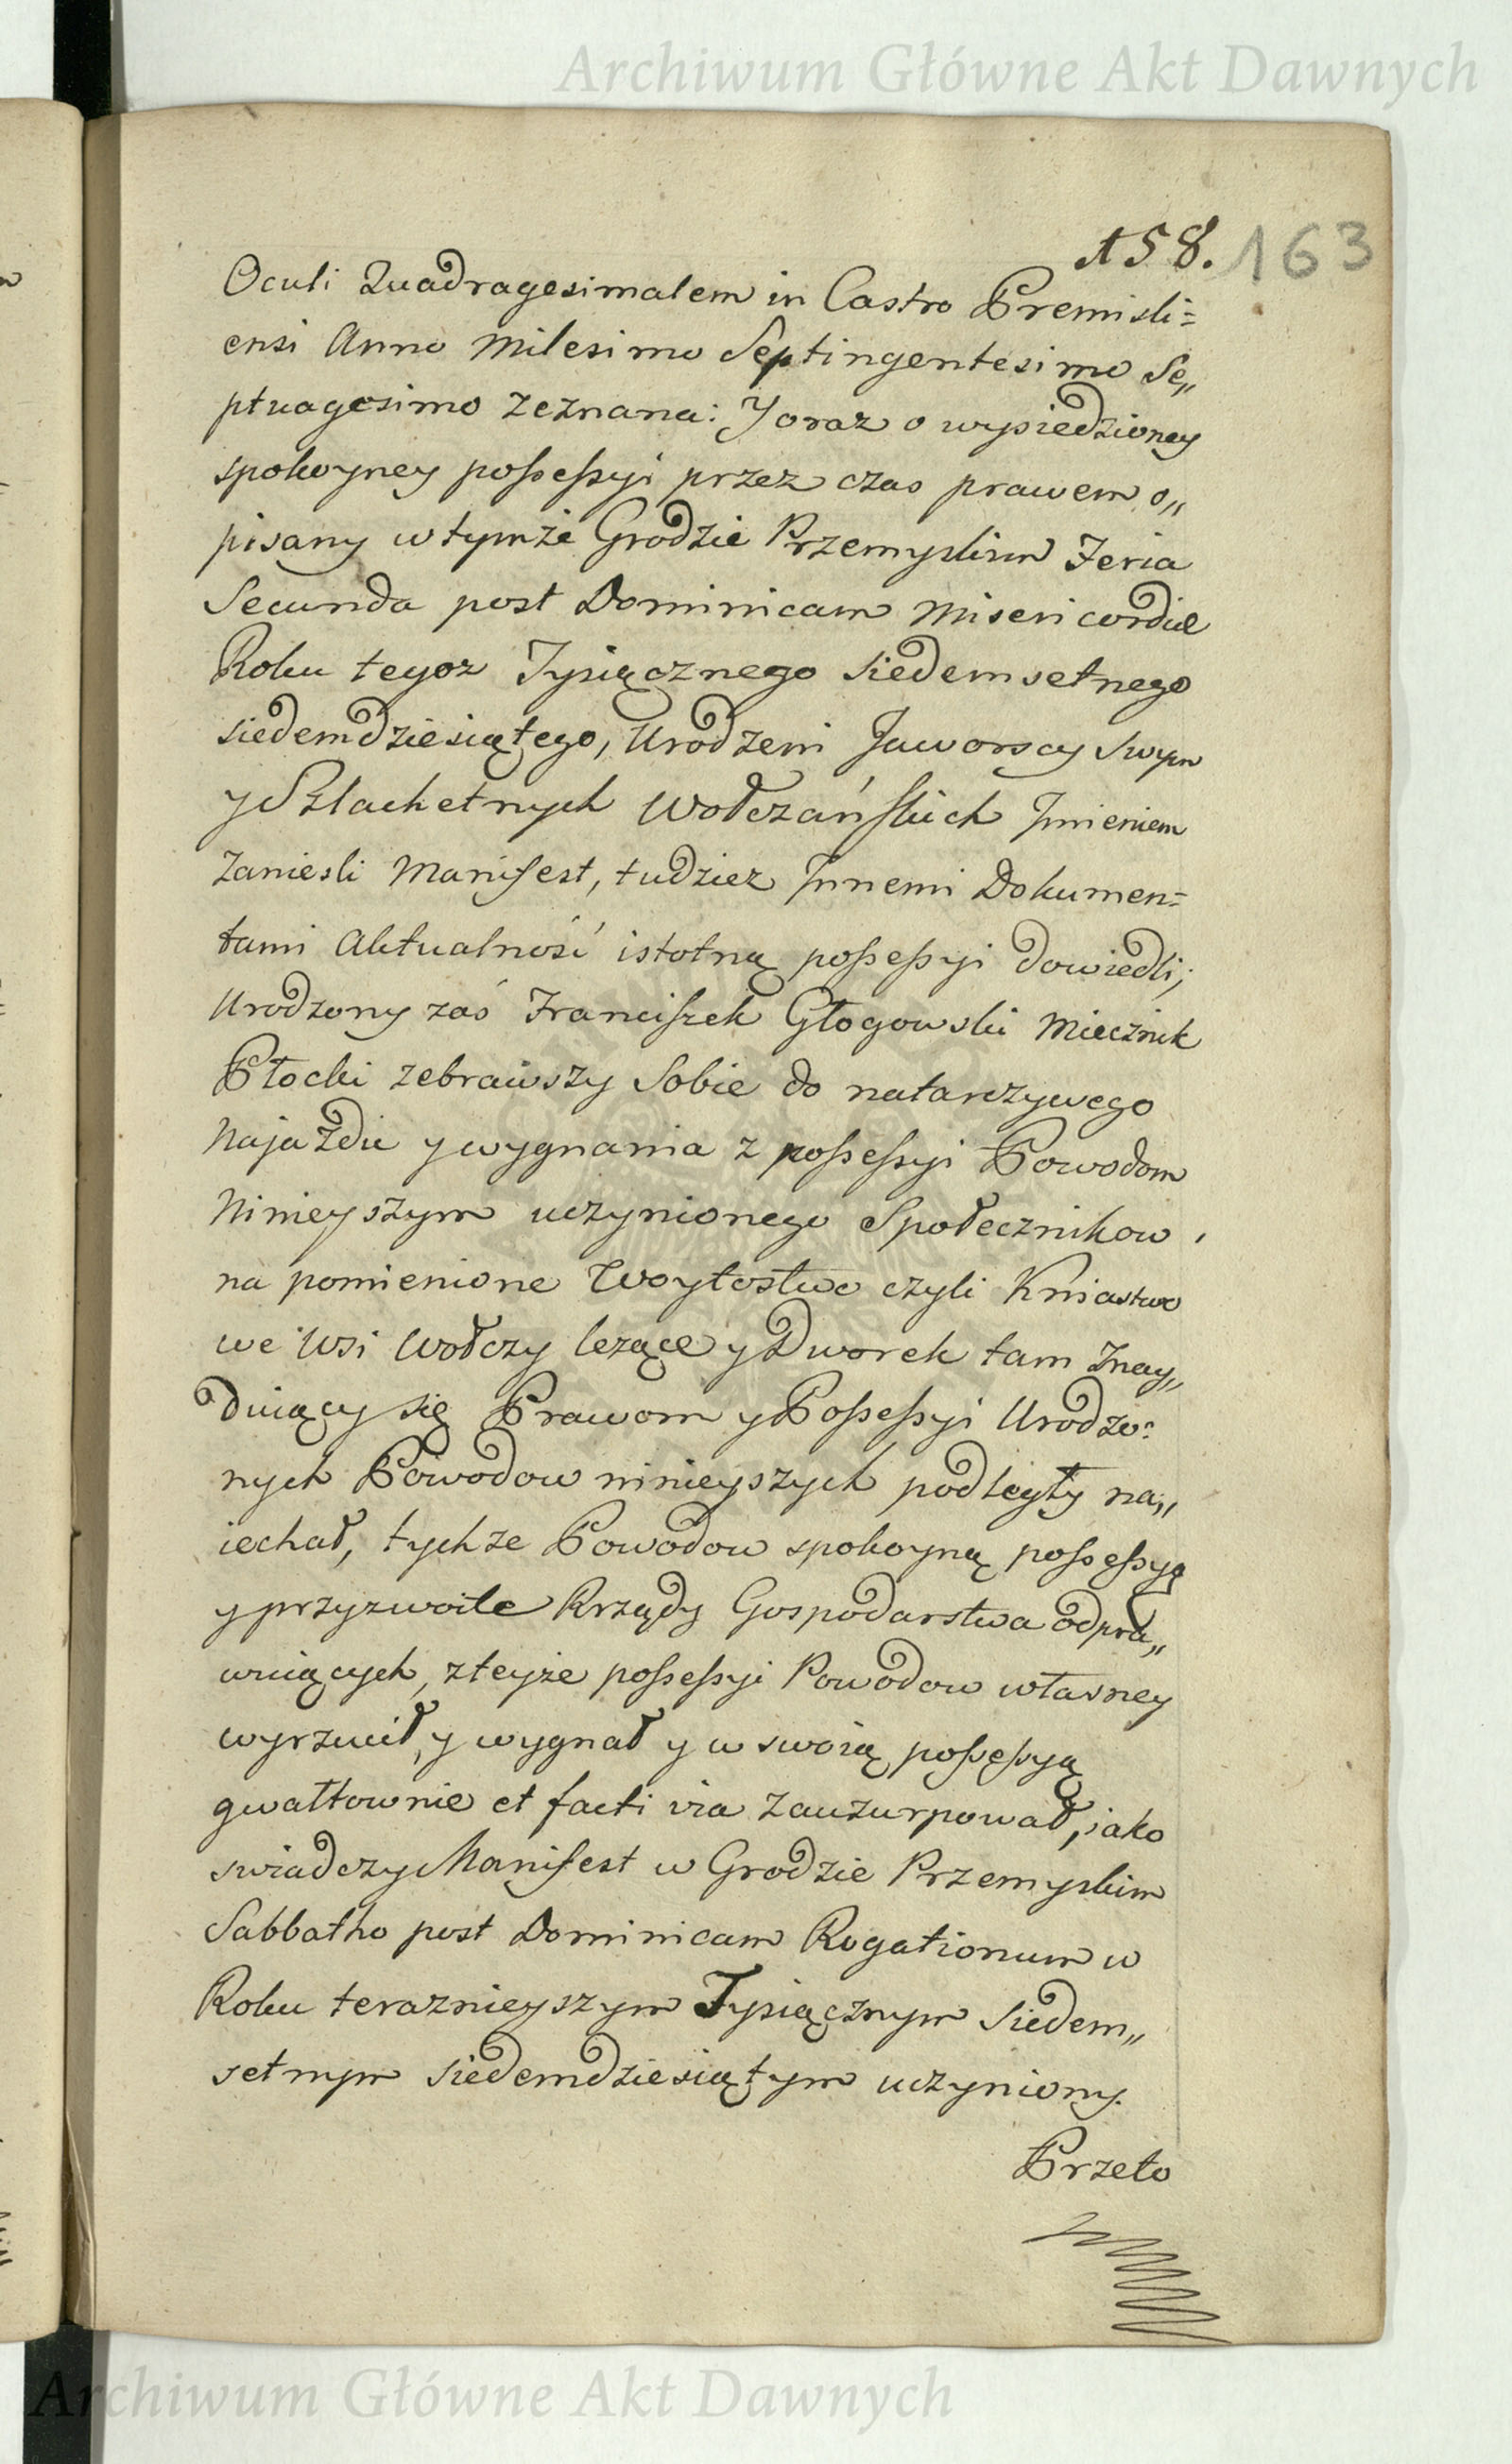 Archiwum Główne Akt Dawnych
158. 163
Oculi Quadragesimalem in Castro Premisli=
ensi Anno Milesimo Septingentesimo Se„
ptuagesimo zeznana: Y oraz o wysiedzioney
spokoyney possessyi przez czas prawem o„
pisany w tymże Grodzie Przemyslim Feria
Secunda post Dominicam Misericordiæ
Roku tegoz Tysiącznego siedemsetnego
siedemdziesiątego, Urodzeni Jaworscy Swym
y Szlachetnych Wołczańskich Imieniem
zaniesli Manifest, tudziez Innemi Dokumen=
tami Aktualność istotną possessyi dowiedli;
Urodzony zaś Franciszek Głogowski Miecznik
Płocki zebrawszy Sobie do natarczywego
Najazdu y wygnania z possessyi Powodom
Ninieyszym uczynionego Społecznikow,
na pomienione Woytostwo czyli Kniastwo
we Wsi Wołczy leżące y Dworek tam Znay„
duiący się Prawom y Possessyi Urodzo=
nych Powodow ninieyszych podległy na„
iechał, tychze Powodow spokoyną possessyą
y przyzwoite Rządy Gospodarstwa odpra„
wuiących, z teyże possessyi Powodow własney
wyrzucił, y wygnał y w swoią possessyą
gwałtownie et facti via zauzurpował, iako
swiadczy Manifest w Grodzie Przemyskim
Sabbatho post Dominicam Rogationum w
Roku terazniejszym Tysiącznym Siedem„
setnym siedemdziesiątym uczyniony.
Przeto
Archiwum Główne Akt Dawnych